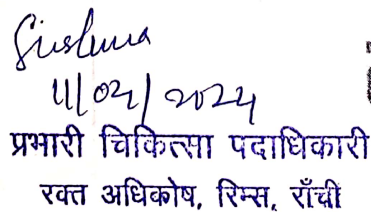 11/04/2024
प्रभारी चिकित्सा पदाधिकारी
रक्त अधिकोष, रिम्स, राँची